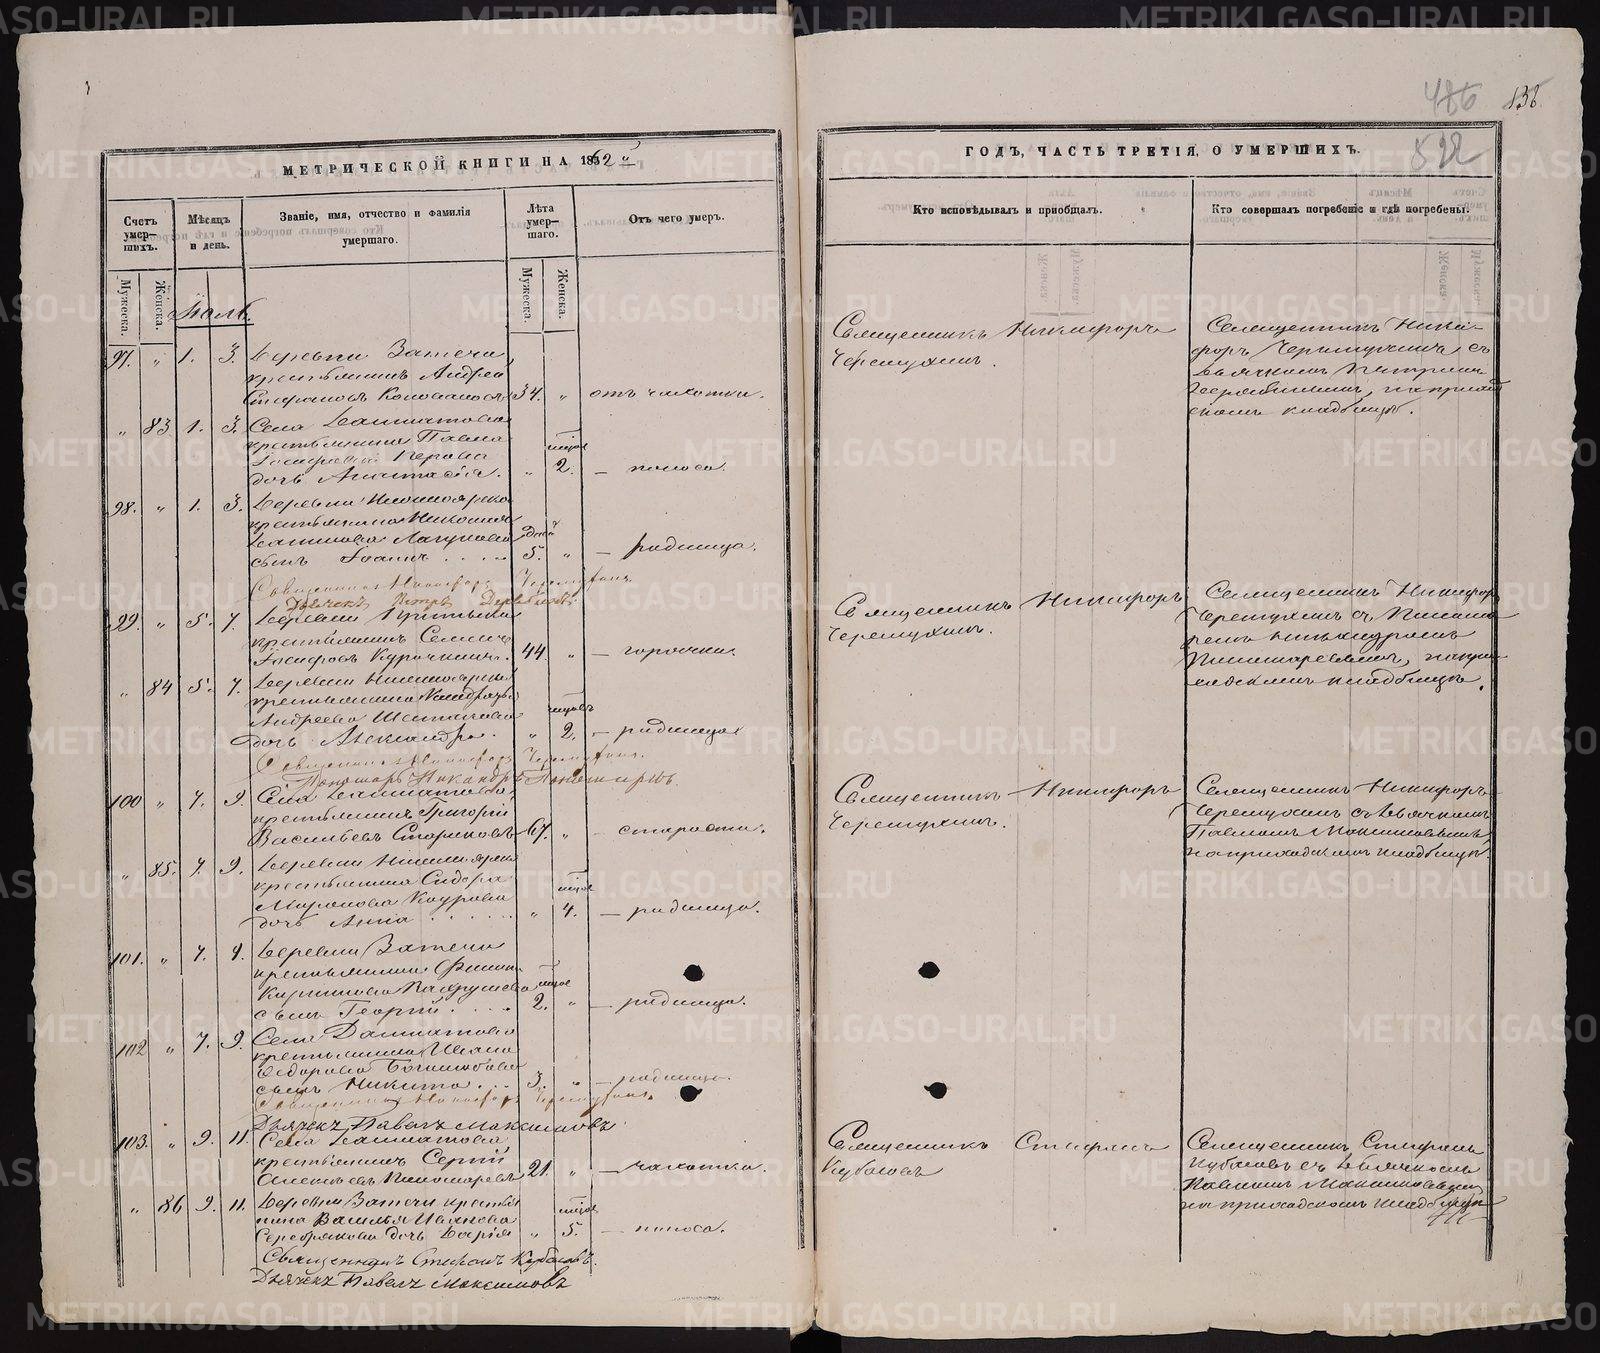 486 138
522
МЕТРИЧЕСКОЙ КНИГИ НА 1862й
ГОДЪ, ЧАСТЬ ТРЕТІЯ, О УМЕРШИХЪ.
Счетъ умер-шихъ.
Мѣсяцъ и день.
Званіе, имя, отчество и фамилія умершаго.
Лѣта умер-шаго.
Отъ чего умеръ.
Кто исповѣдывалъ и пріобщалъ.
Кто совершалъ погребеніе и гдѣ погребены.
Мужеска.
Женска.
Мужеска.
Женска.
Іюль.
97. " 1. 3. Деревни Затечи
крестьянинъ Андрей
Стефановъ 34. " отъ чахотки.
Священникъ Никифоръ
Черемухинъ.
Священникъ Ники-
форъ Черемухинъ съ
дьячкомъ Петромъ
на приход
скомъ кладбищѣ.
" 83 1. 3. Села Далматова
крестьянина Павла
Перова
дочь Анастасія. " 2. — поноса.
98. " 1. 3. Деревни Нижнеярской
крестьянина Николая
Лагунова дней
сынъ Іоаннъ .... 5. " — родимца.
Священникъ Никифоръ Черемухинъ
Дьячекъ Петръ
99. " 5. 7. Деревни
крестьянинъ Семенъ
Іосифовъ Курочкинъ. 44. " — горячки.
Священникъ Никифоръ
Черемухинъ.
Священникъ Никифоръ
Черемухинъ съ Понома
ремъ Никандромъ
Пономаревымъ, на при
ходскомъ кладбищѣ.
" 84 5. 7. Деревни Нижнеярской
крестьянина
Андреева
дочь Александра. " 2. — родимца
Священникъ Никифоръ Черемухинъ.
Пономарь Никандръ Пономаревъ.
100 " 7. 9. Села Далматова,
крестьянинъ Григорій
Васильевъ Стариковъ 67. " — старости.
Священникъ Никифоръ
Черемухинъ.
Священникъ Никифоръ
Черемухинъ съ дьячкомъ
Павломъ Максимовымъ,
на приходскомъ кладбищѣ.
" 85. 7. 9. Деревни Нижнеярской
крестьянина Сидора
Миронова Каурова
дочь Анна ...... " 4. — родимца.
101. " 7. 9. Деревни Затечи
крестьянина
Кирилова Пахрушева
сынъ Георгій .... 2. " — родимца.
102 " 7. 9. Села Далматова
крестьянина Ивана
Ѳедорова
сынъ Никита ... 3. " — родимца.
Священникъ Никифоръ Черемухинъ.
Дьячекъ Павелъ Максимовъ
103. " 9. 11. Села Далматова
крестьянинъ Сергій
Алексѣевъ Пономаревъ 21. " — чахотки.
Священникъ Стефанъ
Кубасовъ
Священникъ Стефанъ
Кубасовъ съ дьячкомъ
Павломъ Максимовымъ
на приходскомъ кладбищѣ
" 86 9. 11. Деревни Затечи крестья
нина Василья Иванова
Серебрякова дочь Дарія " 5. — поноса.
Священникъ Стефанъ Кубасовъ.
Дьячекъ Павелъ Максимовъ
METRIKI.GASO-URAL.RU